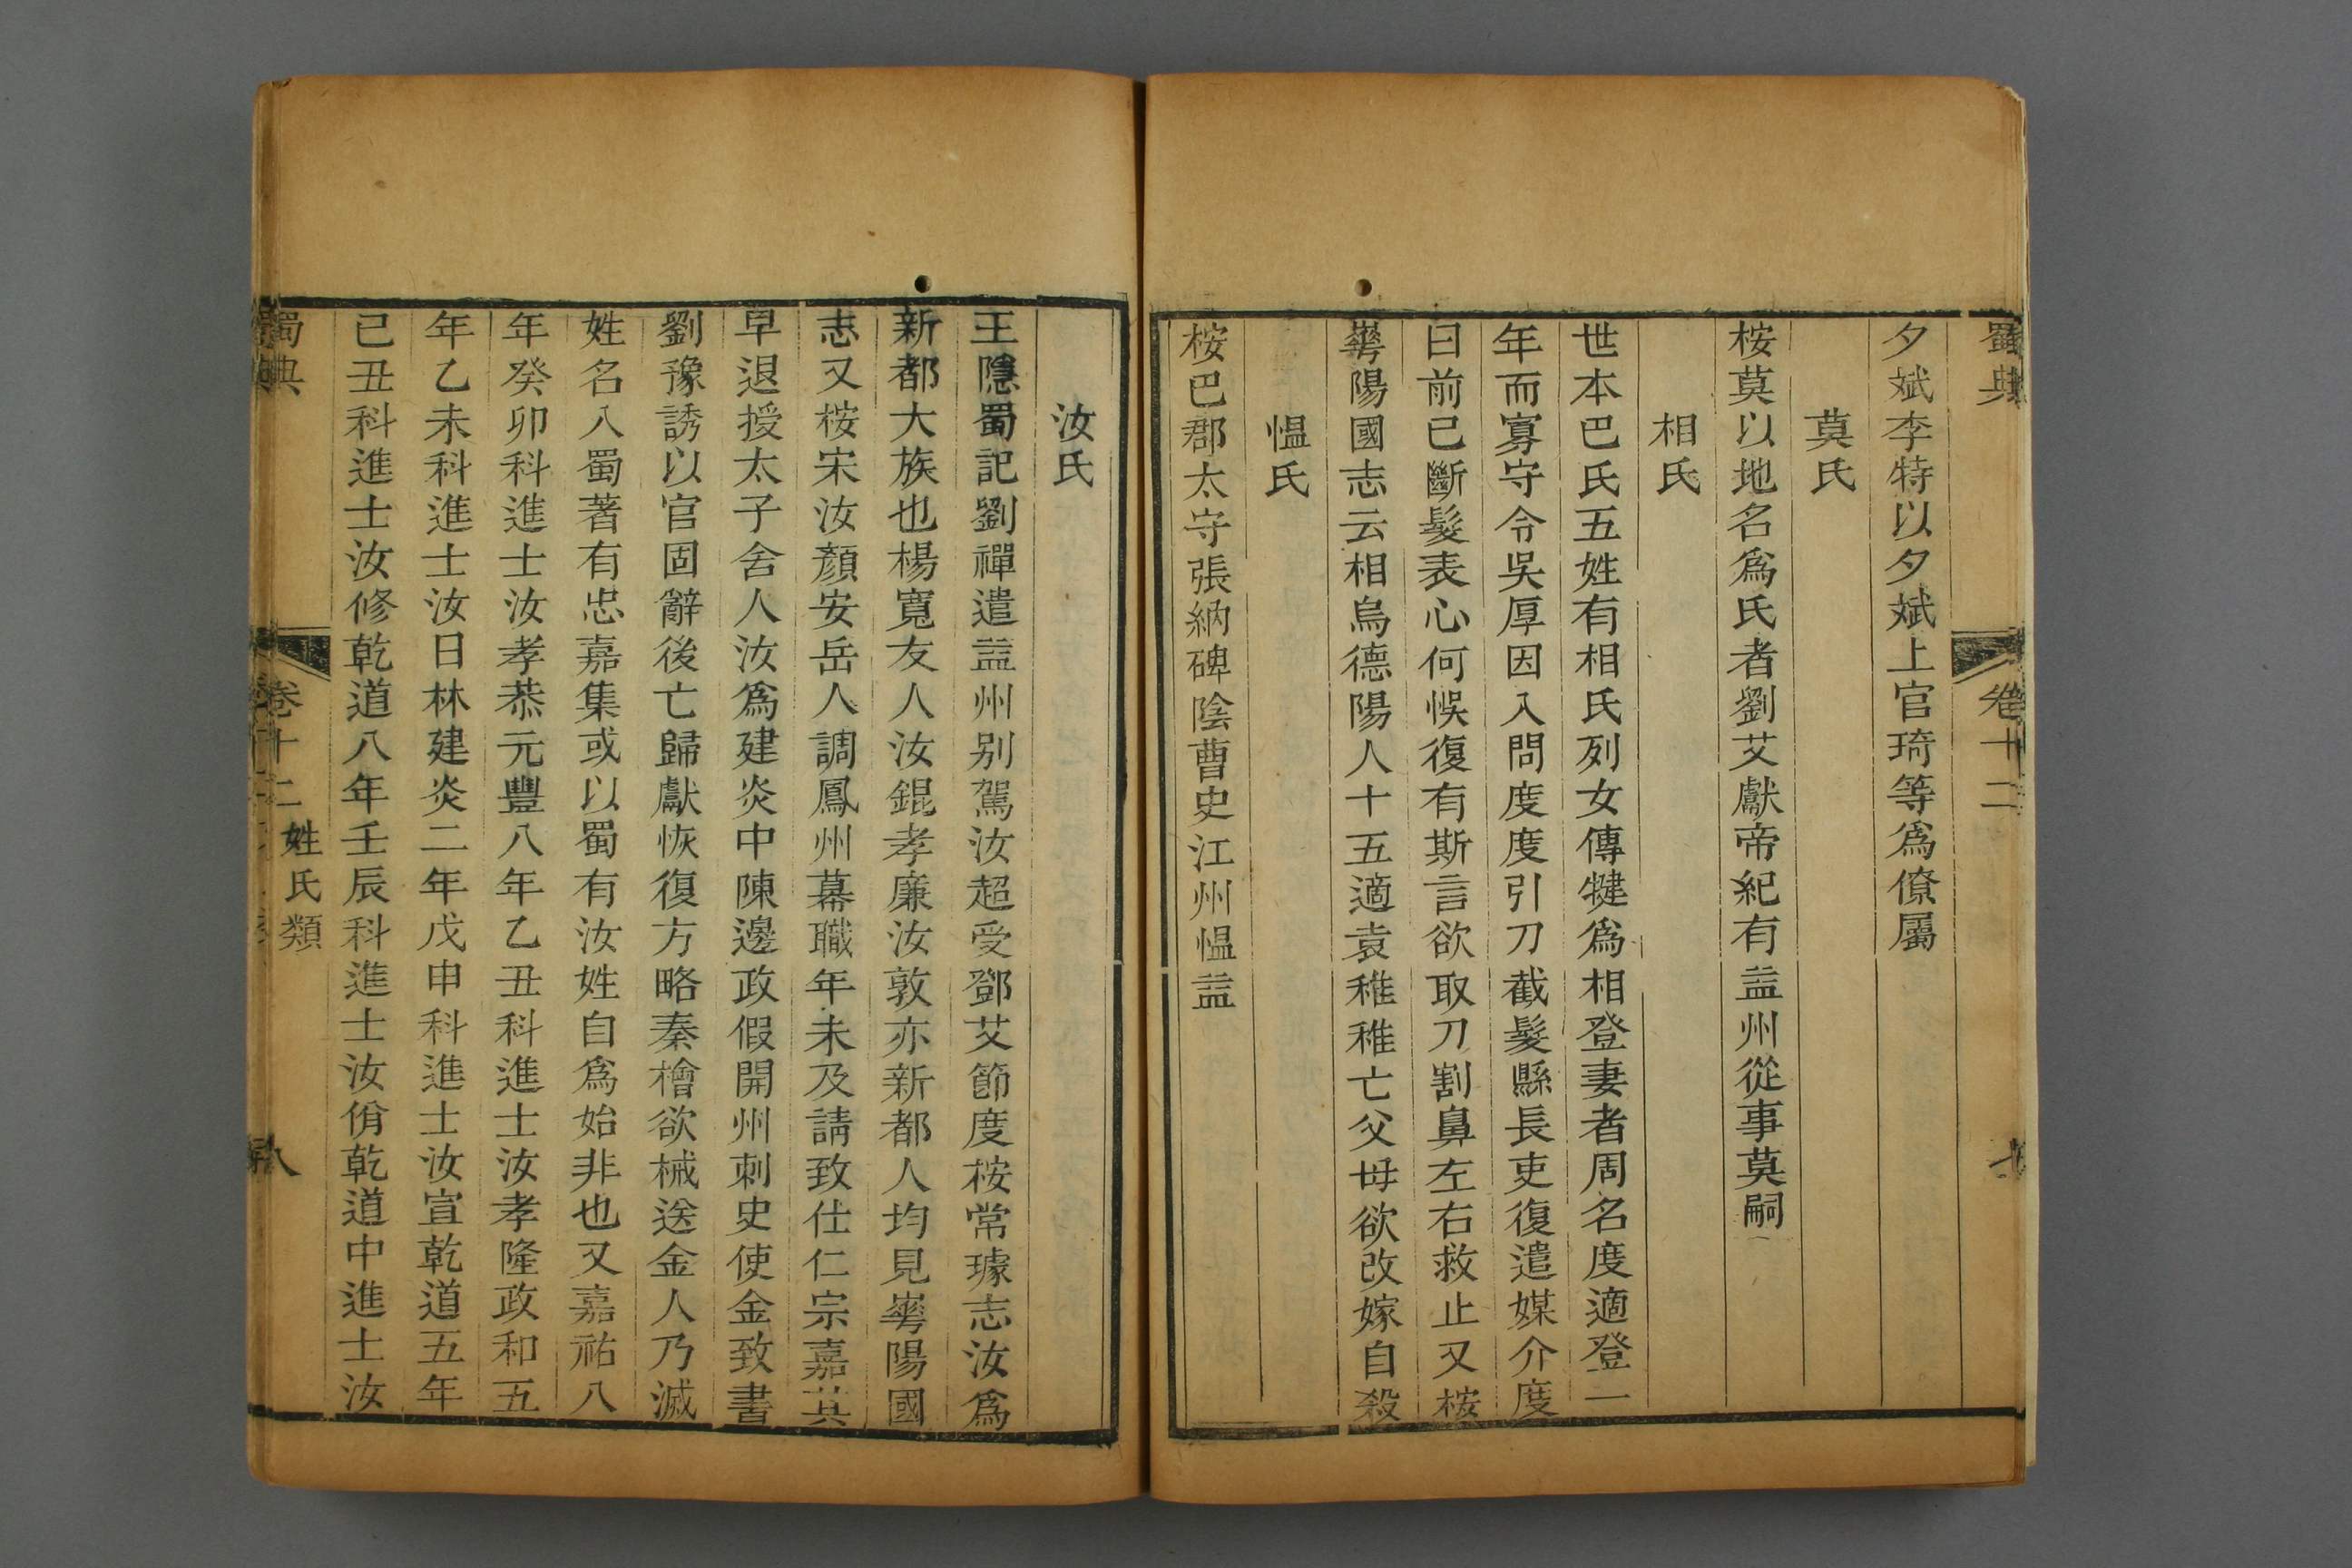 蜀典
卷十二
七
夕斌李特以夕斌上官琦等爲僚屬
莫氏
桉莫以地名爲氏者劉艾獻帝紀有益州從事莫嗣
相氏
世本巴氏五姓有相氏列女傳犍爲相登妻者周名度適登一
年而寡守令吳厚因入問度度引刀截髮縣長吏復遣媒介度
曰前已斷髮表心何悞復有斯言欲取刀割鼻左右救止又桉
華陽國志云相烏德陽人十五適袁稚稚亡父母欲改嫁自殺
愠氏
桉巴郡太守張納碑陰曹史江州愠益
汝氏
王隱蜀記劉禪遣益州別駕汝超受鄧艾節度桉常璩志汝爲
新都大族也楊寬友人汝錕孝廉汝敦亦新都人均見華陽國
志又桉宋汝顏安岳人調鳳州幕職年未及請致仕仁宗嘉其
早退授太子舍人汝爲建炎中陳邊政假開州刺史使金致書
劉豫誘以官固辭後亡歸獻恢復方略秦檜欲械送金人乃滅
姓名入蜀著有忠嘉集或以蜀有汝姓自爲始非也又嘉祐八
年癸卯科進士汝孝恭元豐八年乙丑科進士汝孝隆政和五
年乙未科進士汝日林建炎二年戊申科進士汝宣乾道五年
己丑科進士汝修乾道八年壬辰科進士汝脩乾道中進士汝
蜀典
卷十二
姓氏類
八